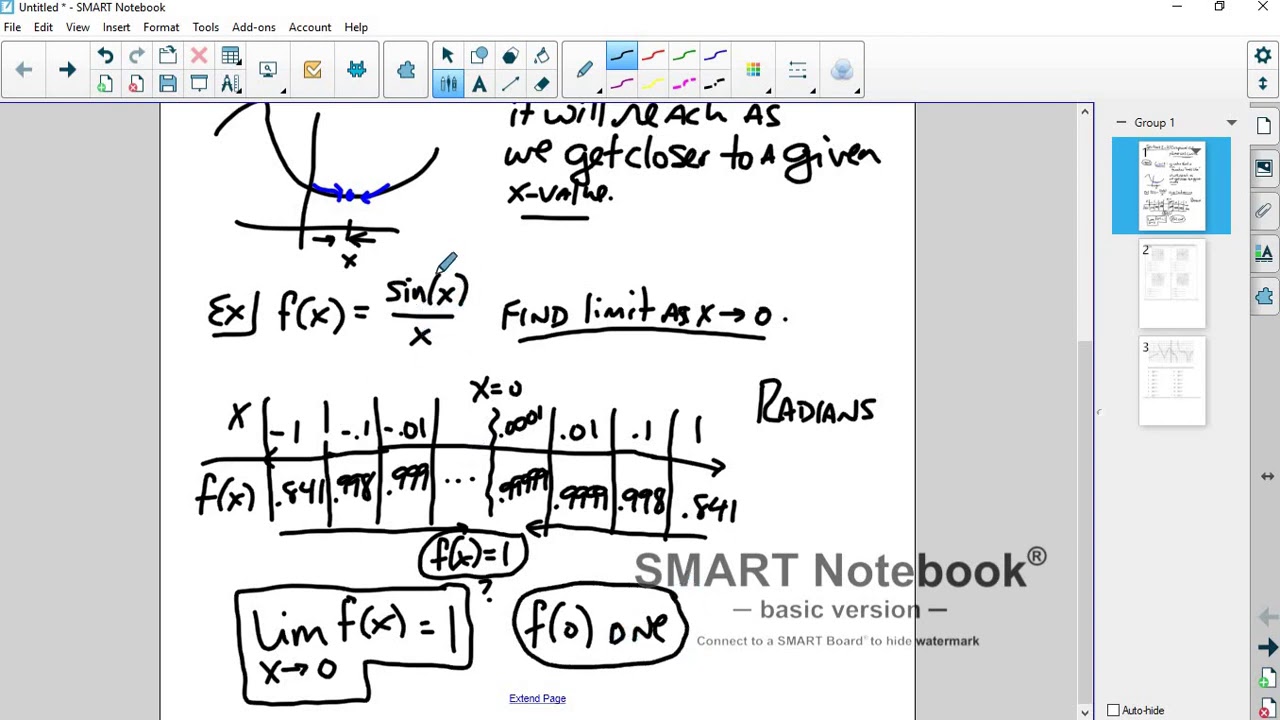 Untitled * - SMART Notebook
File Edit View Insert Format Tools Add-ons Account Help
Group 1
1
2
3
it will reach as
we get closer to a given
x-value.
x
Ex] f(x) = sin(x)/x FIND limit AS x → 0.
x=0
RADIANS
x -1 -.1 -.01 .0001 .01 .1 1
f(x) .841 .998 .999 ... .99999 .9999 .998 .841
f(x)=1
?
lim f(x) = 1
x→0
f(0) DNE
SMART Notebook®
— basic version —
Connect to a SMART Board® to hide watermark
Extend Page
Auto-hide